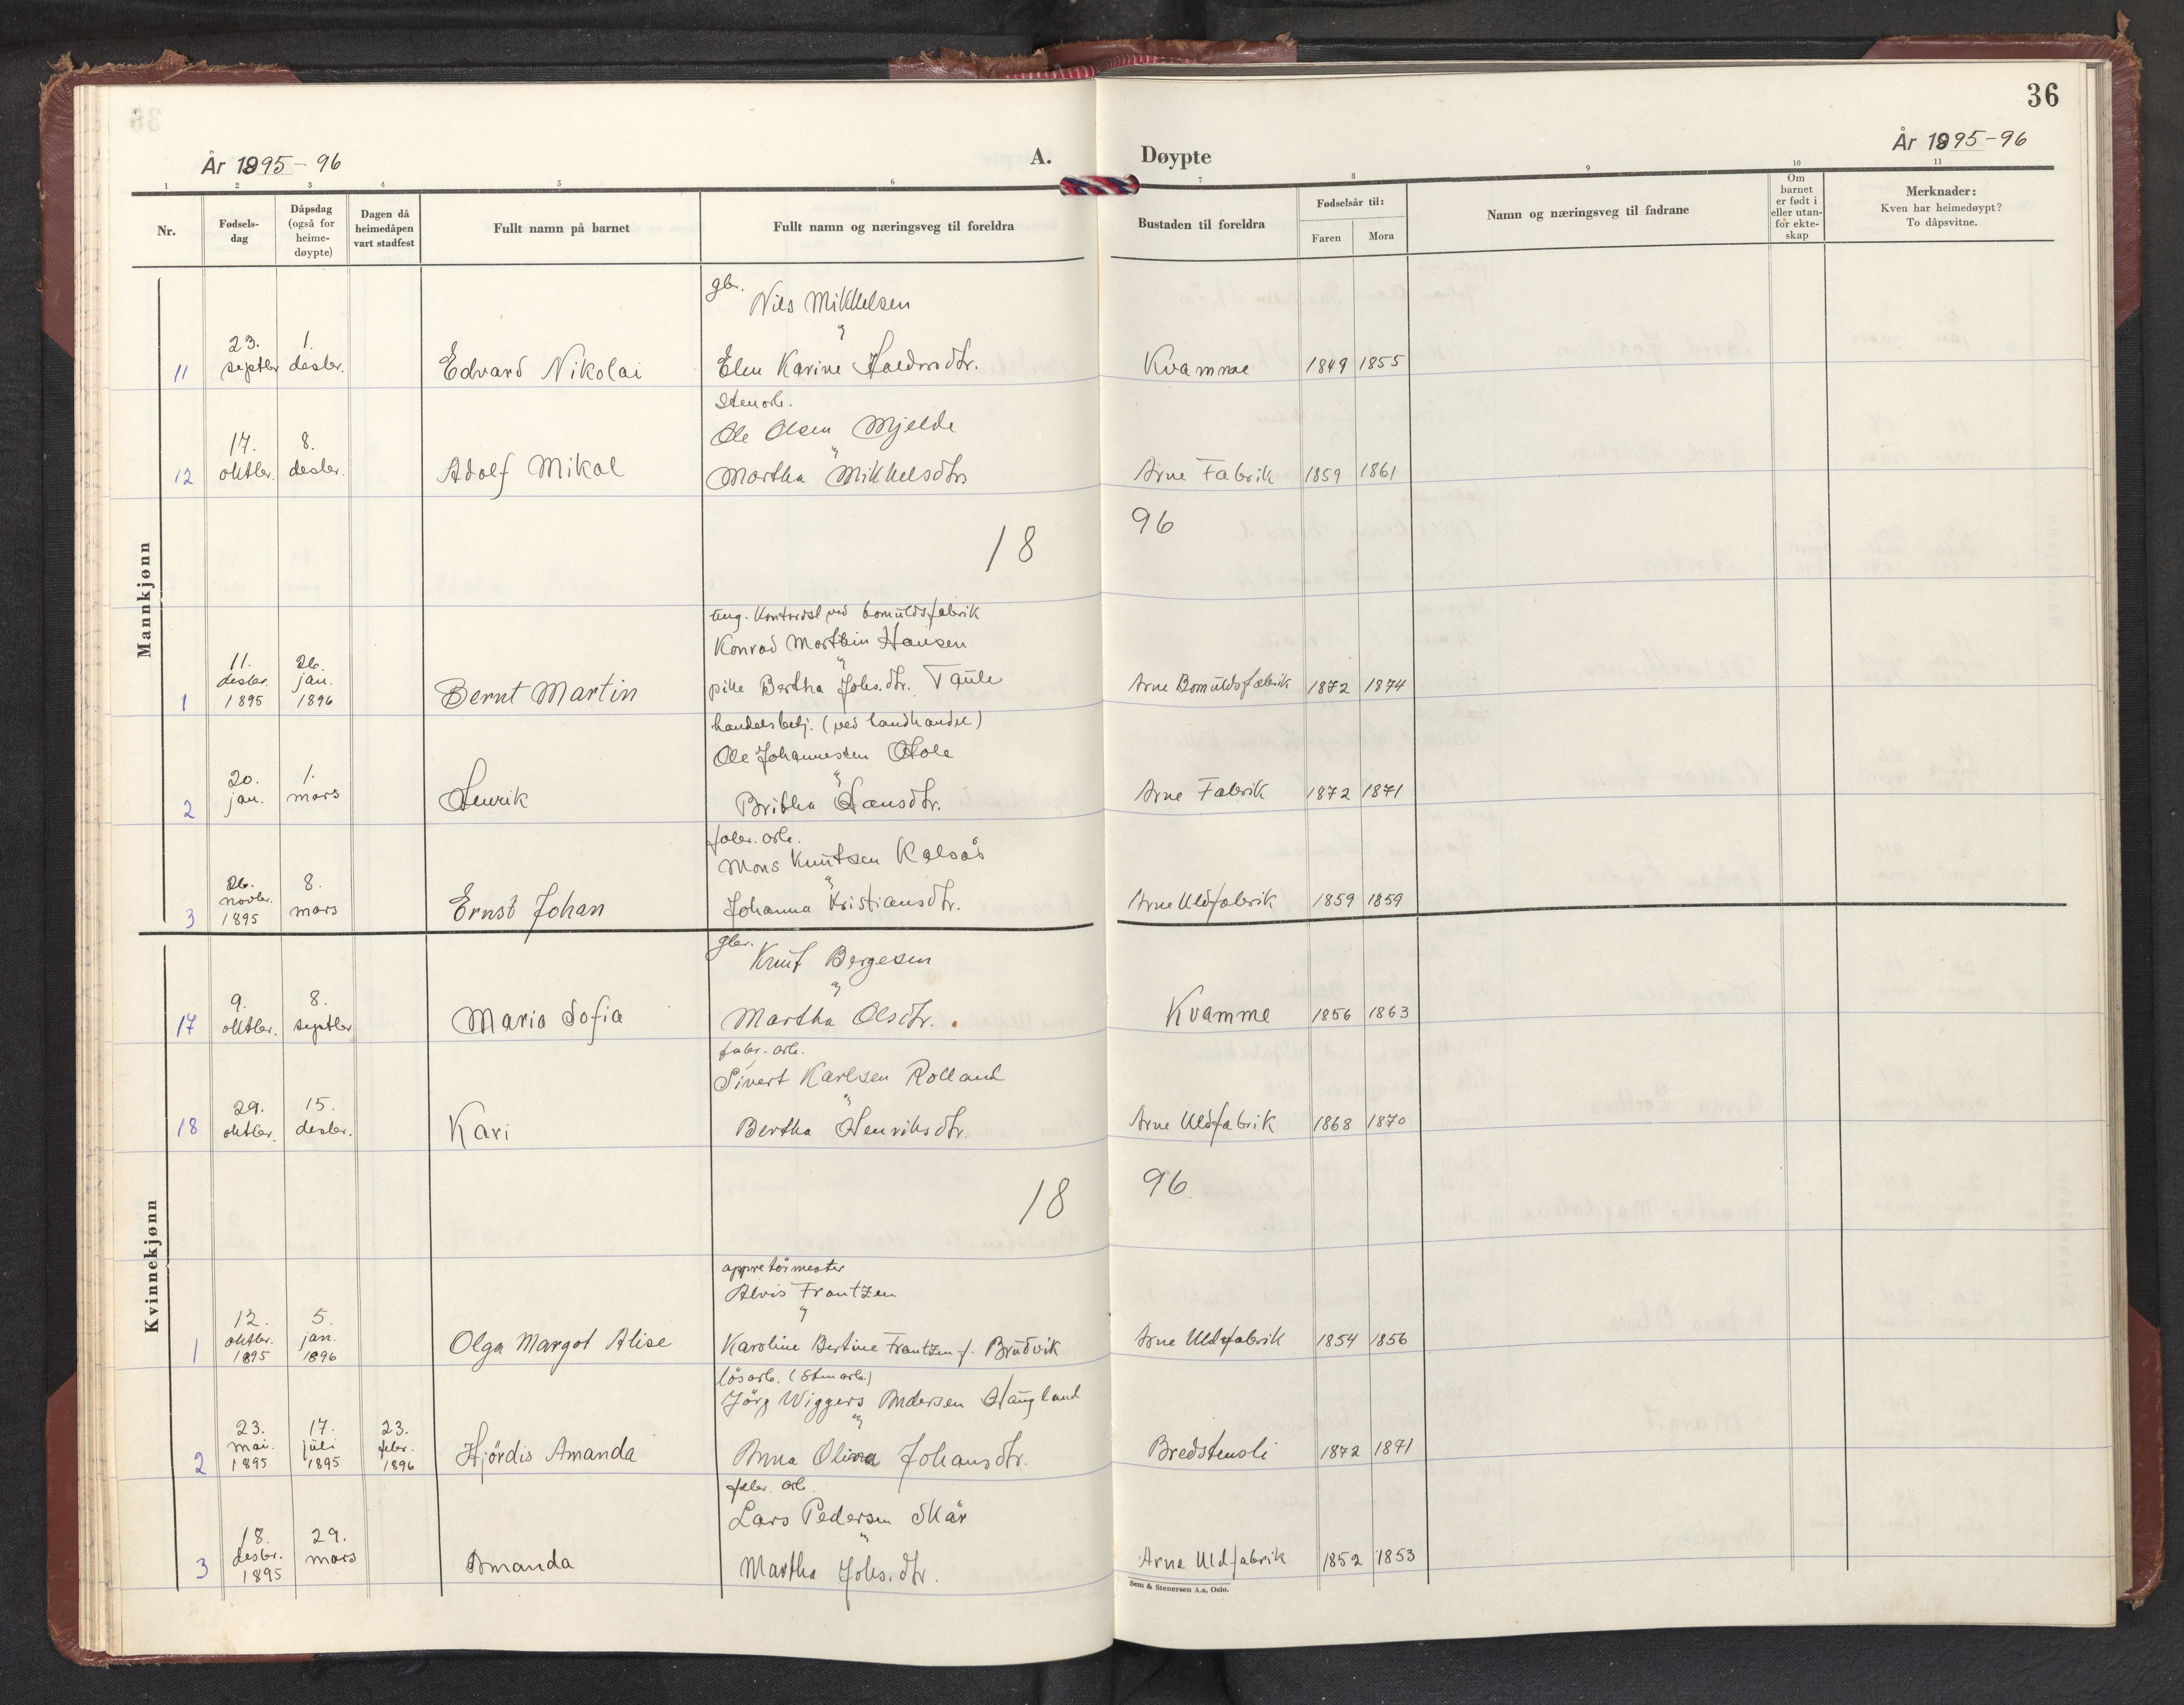 36
År 1895-96
A.
Døypte
År 1895-96
1 2 3 4 5 6 7 8 9 10 11
Nr.
Fødsels-
dag
Dåpsdag
(også for
heime-
døypte)
Dagen då
heimedåpen
vart stadfest
Fullt namn på barnet
Fullt namn og næringsveg til foreldra
Bustaden til foreldra
Fødselsår til:
Faren Mora
Namn og næringsveg til fadrane
Om
barnet
er født i
eller utan-
for ekte-
skap
Merknader:
Kven har heimedøypt?
To dåpsvitne.
Mannkjønn
gbr.
Nils Mikkelsen
23. 1.
11 septbr desbr. Edvard Nikolai Elen Karine Haldorsdtr. Kvamme 1849 1855
Stenarb.
Ole Olsen Mjelde
17. 8.
12 oktbr. desbr. Adolf Mikal Martha Mikkelsdtr. Arne Fabrik 1859 1861
18 96
ung. Kontorist ved bomuldsfabrik
Konrad Martin Hansen
11. 26.
desbr. jan.
1 1895 1896 Bernt Martin pike Bertha Johs.dtr. Taule Arne Bomuldsfabrik 1872 1874
handelsbetj. (ved landhandel)
Ole Johannesen Hole
20. 1.
2 jan. mars Henrik Britha Hansdtr. Arne Fabrik 1872 1871
fabr. arb.
Mons Knutsen Kalsås
26. 8.
novbr.
3 1895 mars Ernst Johan Johanna Kristiansdtr. Arne Uldfabrik 1859 1859
Kvinnekjønn
gbr.
Knut Bergesen
9. 8.
17 oktbr. septbr Maria Sofia Martha Olsdtr. Kvamme 1856 1863
fabr. arb.
Sivert Karlsen Rolland
29. 15.
18 oktbr. desbr. Kari Bertha Henriksdtr. Arne Uldfabrik 1868 1870
18 96
appretörmester
Alvis Frantzen
12. 5.
oktbr. jan.
1 1895 1896 Olga Margot Alise Karoline Bertine Frantzen f. Brudvik Arne Uldfabrik 1854 1856
lösarb. (Stenarb.)
Jörg Wiggers Andersen Haugland
23. 17. 23.
mai. juli febr.
2 1895 1895 1896 Hjördis Amanda Anna Olina Johansdtr. Bredstensli 1872 1871
fabr. arb.
Lars Pedersen Skår
18. 29.
desbr. mars
3 1895 Amanda Martha Johs.dtr. Arne Uldfabrik 1852 1853
Sem & Stenersen A.s, Oslo.